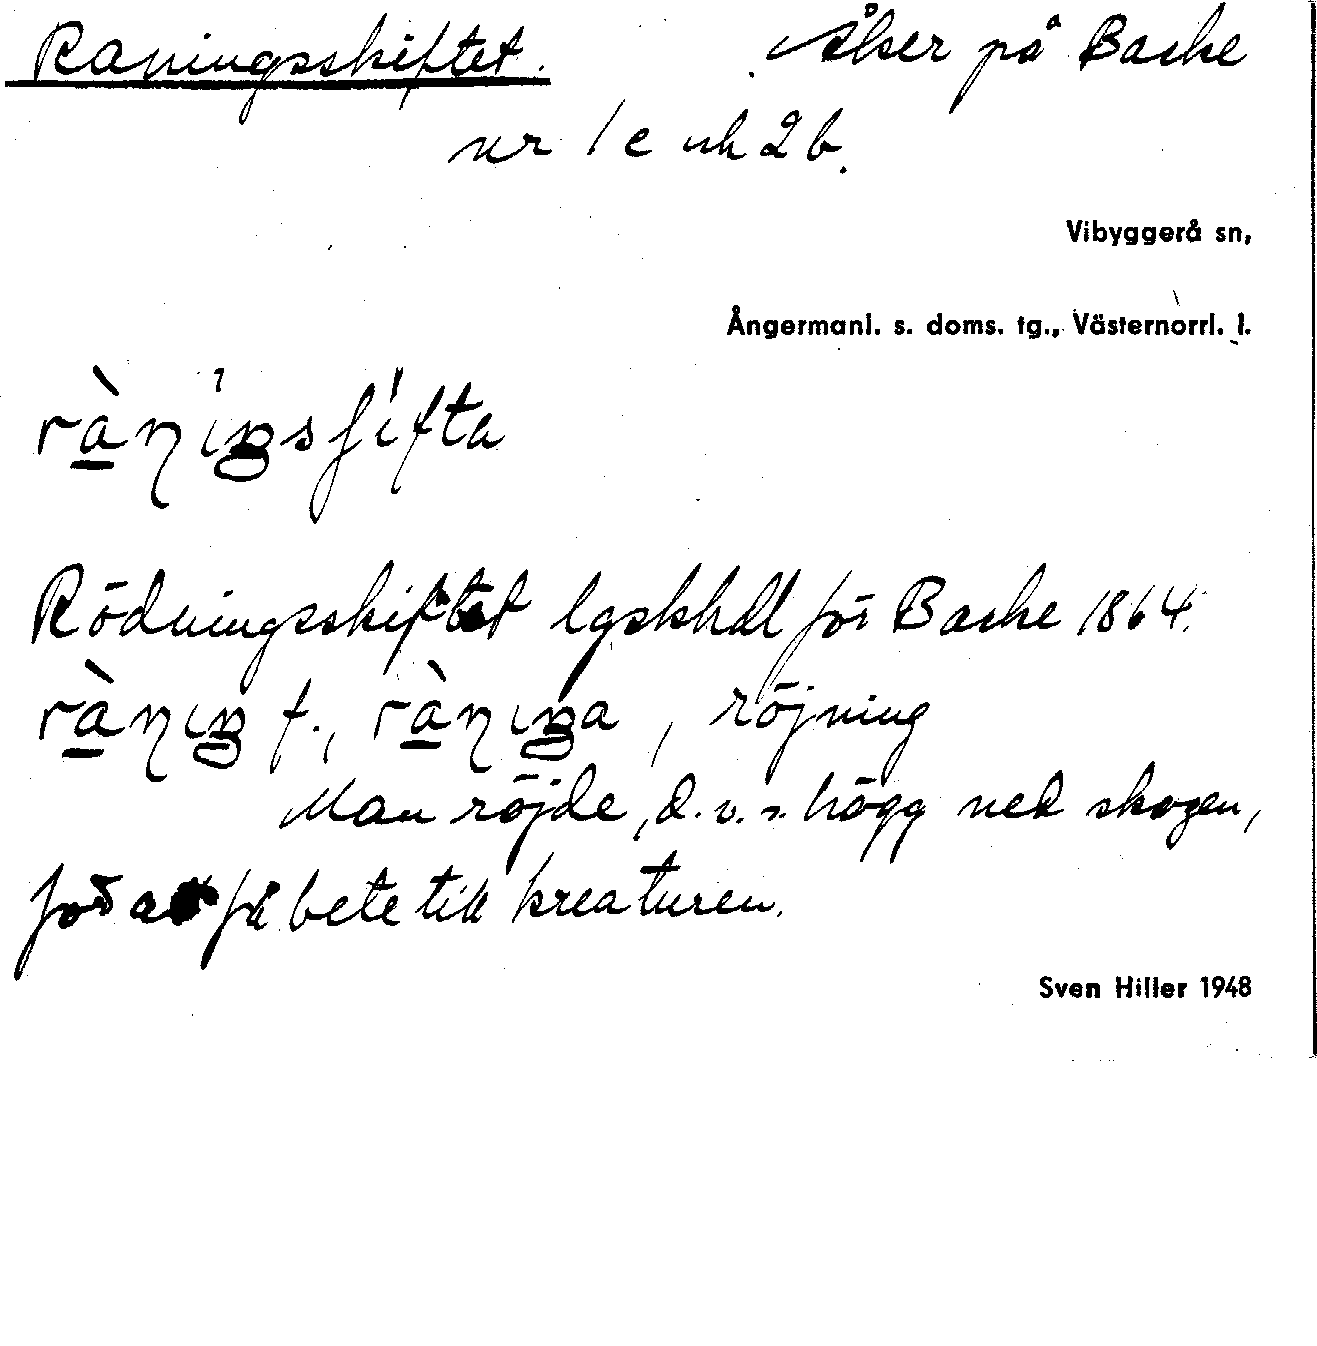 Raningsskiftet. Åker på Backe
nr 1c och 2b.
Vibyggerå sn,
Ångermanl. s. doms. tg., Västernorrl. l.
rànіŋsʃifta
Rödningsskiftet lgskhdl för Backe 1864.
ràniŋ f., ràniŋa, röjning
Man röjde, d.v.s. högg ned skogen,
för att få bete till kreaturen.
Sven Hiller 1948